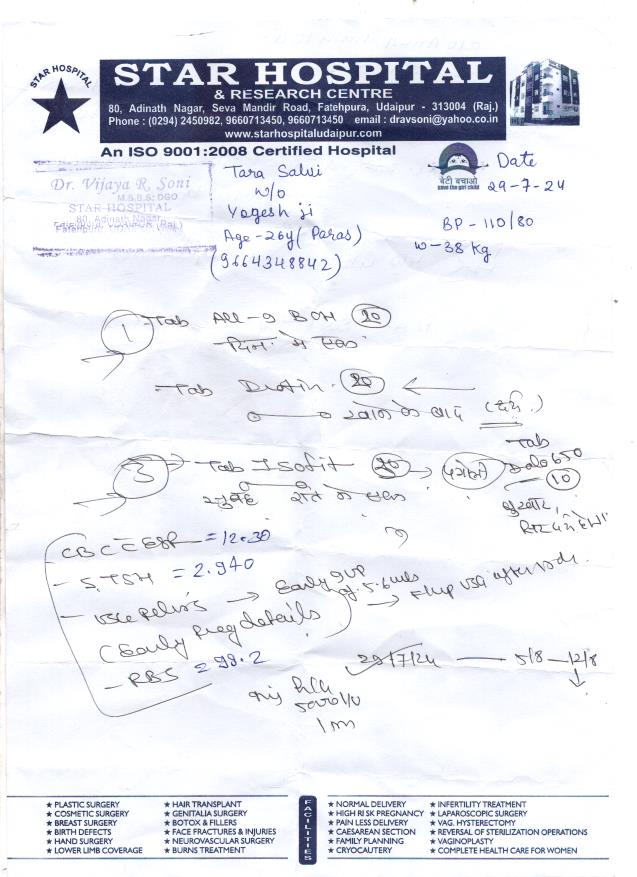 STAR HOSPITAL
STAR HOSPITAL
& RESEARCH CENTRE
80, Adinath Nagar, Seva Mandir Road, Fatehpura, Udaipur - 313004 (Raj.)
Phone : (0294) 2450982, 9660713450, 9660713450 email : dravsoni@yahoo.co.in
www.starhospitaludaipur.com
An ISO 9001:2008 Certified Hospital
बेटी बचाओ
save the girl child
Dr. Vijaya R. Soni
M.B.B.S; DGO
STAR HOSPITAL
80, Adinath Nagar,
Tara Salvi
w/o
Yogesh ji
Age - 26y (Paras)
(9664348842)
Date
29-7-24
BP - 110/80
w - 38 kg
1 Tab All-9 BOH 20
Tab Drotin 20
खाने के बाद (दर्द)
3 Tab Isofit 20
Tab
Dolo 650
10
बुखार,
CBC ESR = 12.30
- S.TSH = 2.940
- USG Pelvis → Early IUP 5.6 wks → F/up USG after
(Early Preg details)
- RBS = 98.2
29/7/24 — 5/8 — 12/8
inj HCG
5000 IU
1m
FACILITIES
★ PLASTIC SURGERY
★ COSMETIC SURGERY
★ BREAST SURGERY
★ BIRTH DEFECTS
★ HAND SURGERY
★ LOWER LIMB COVERAGE
★ HAIR TRANSPLANT
★ GENITALIA SURGERY
★ BOTOX & FILLERS
★ FACE FRACTURES & INJURIES
★ NEUROVASCULAR SURGERY
★ BURNS TREATMENT
★ NORMAL DELIVERY
★ HIGH RISK PREGNANCY
★ PAIN LESS DELIVERY
★ CAESAREAN SECTION
★ FAMILY PLANNING
★ CRYOCAUTERY
★ INFERTILITY TREATMENT
★ LAPAROSCOPIC SURGERY
★ VAG. HYSTERECTOMY
★ REVERSAL OF STERILIZATION OPERATIONS
★ VAGINOPLASTY
★ COMPLETE HEALTH CARE FOR WOMEN